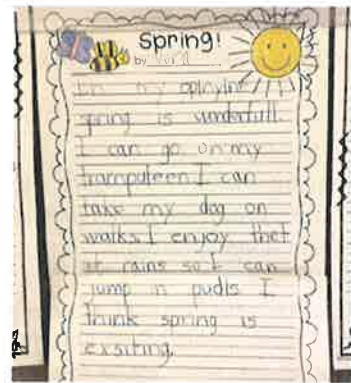 Spring!
by
In my opinyin
spring is wunderfull.
I can go on my
trampoleen I can
take my dog on
walks. I enjoy thet
it rains so I can
jump in pudls I
think spring is
exsiting.